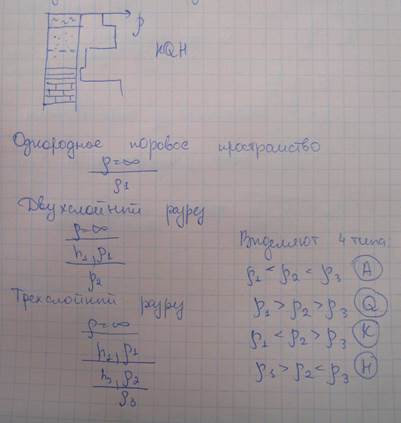 ρ
KQH
Однородное поровое пространство
ρ=∞
ρ1
Двухслойный разрез
ρ=∞
h1, ρ1
ρ2
Трехслойный разрез
ρ=∞
h1, ρ1
h2, ρ2
ρ3
Выделяют 4 типа:
ρ1 < ρ2 < ρ3 A
ρ1 > ρ2 > ρ3 Q
ρ1 < ρ2 > ρ3 K
ρ1 > ρ2 < ρ3 H